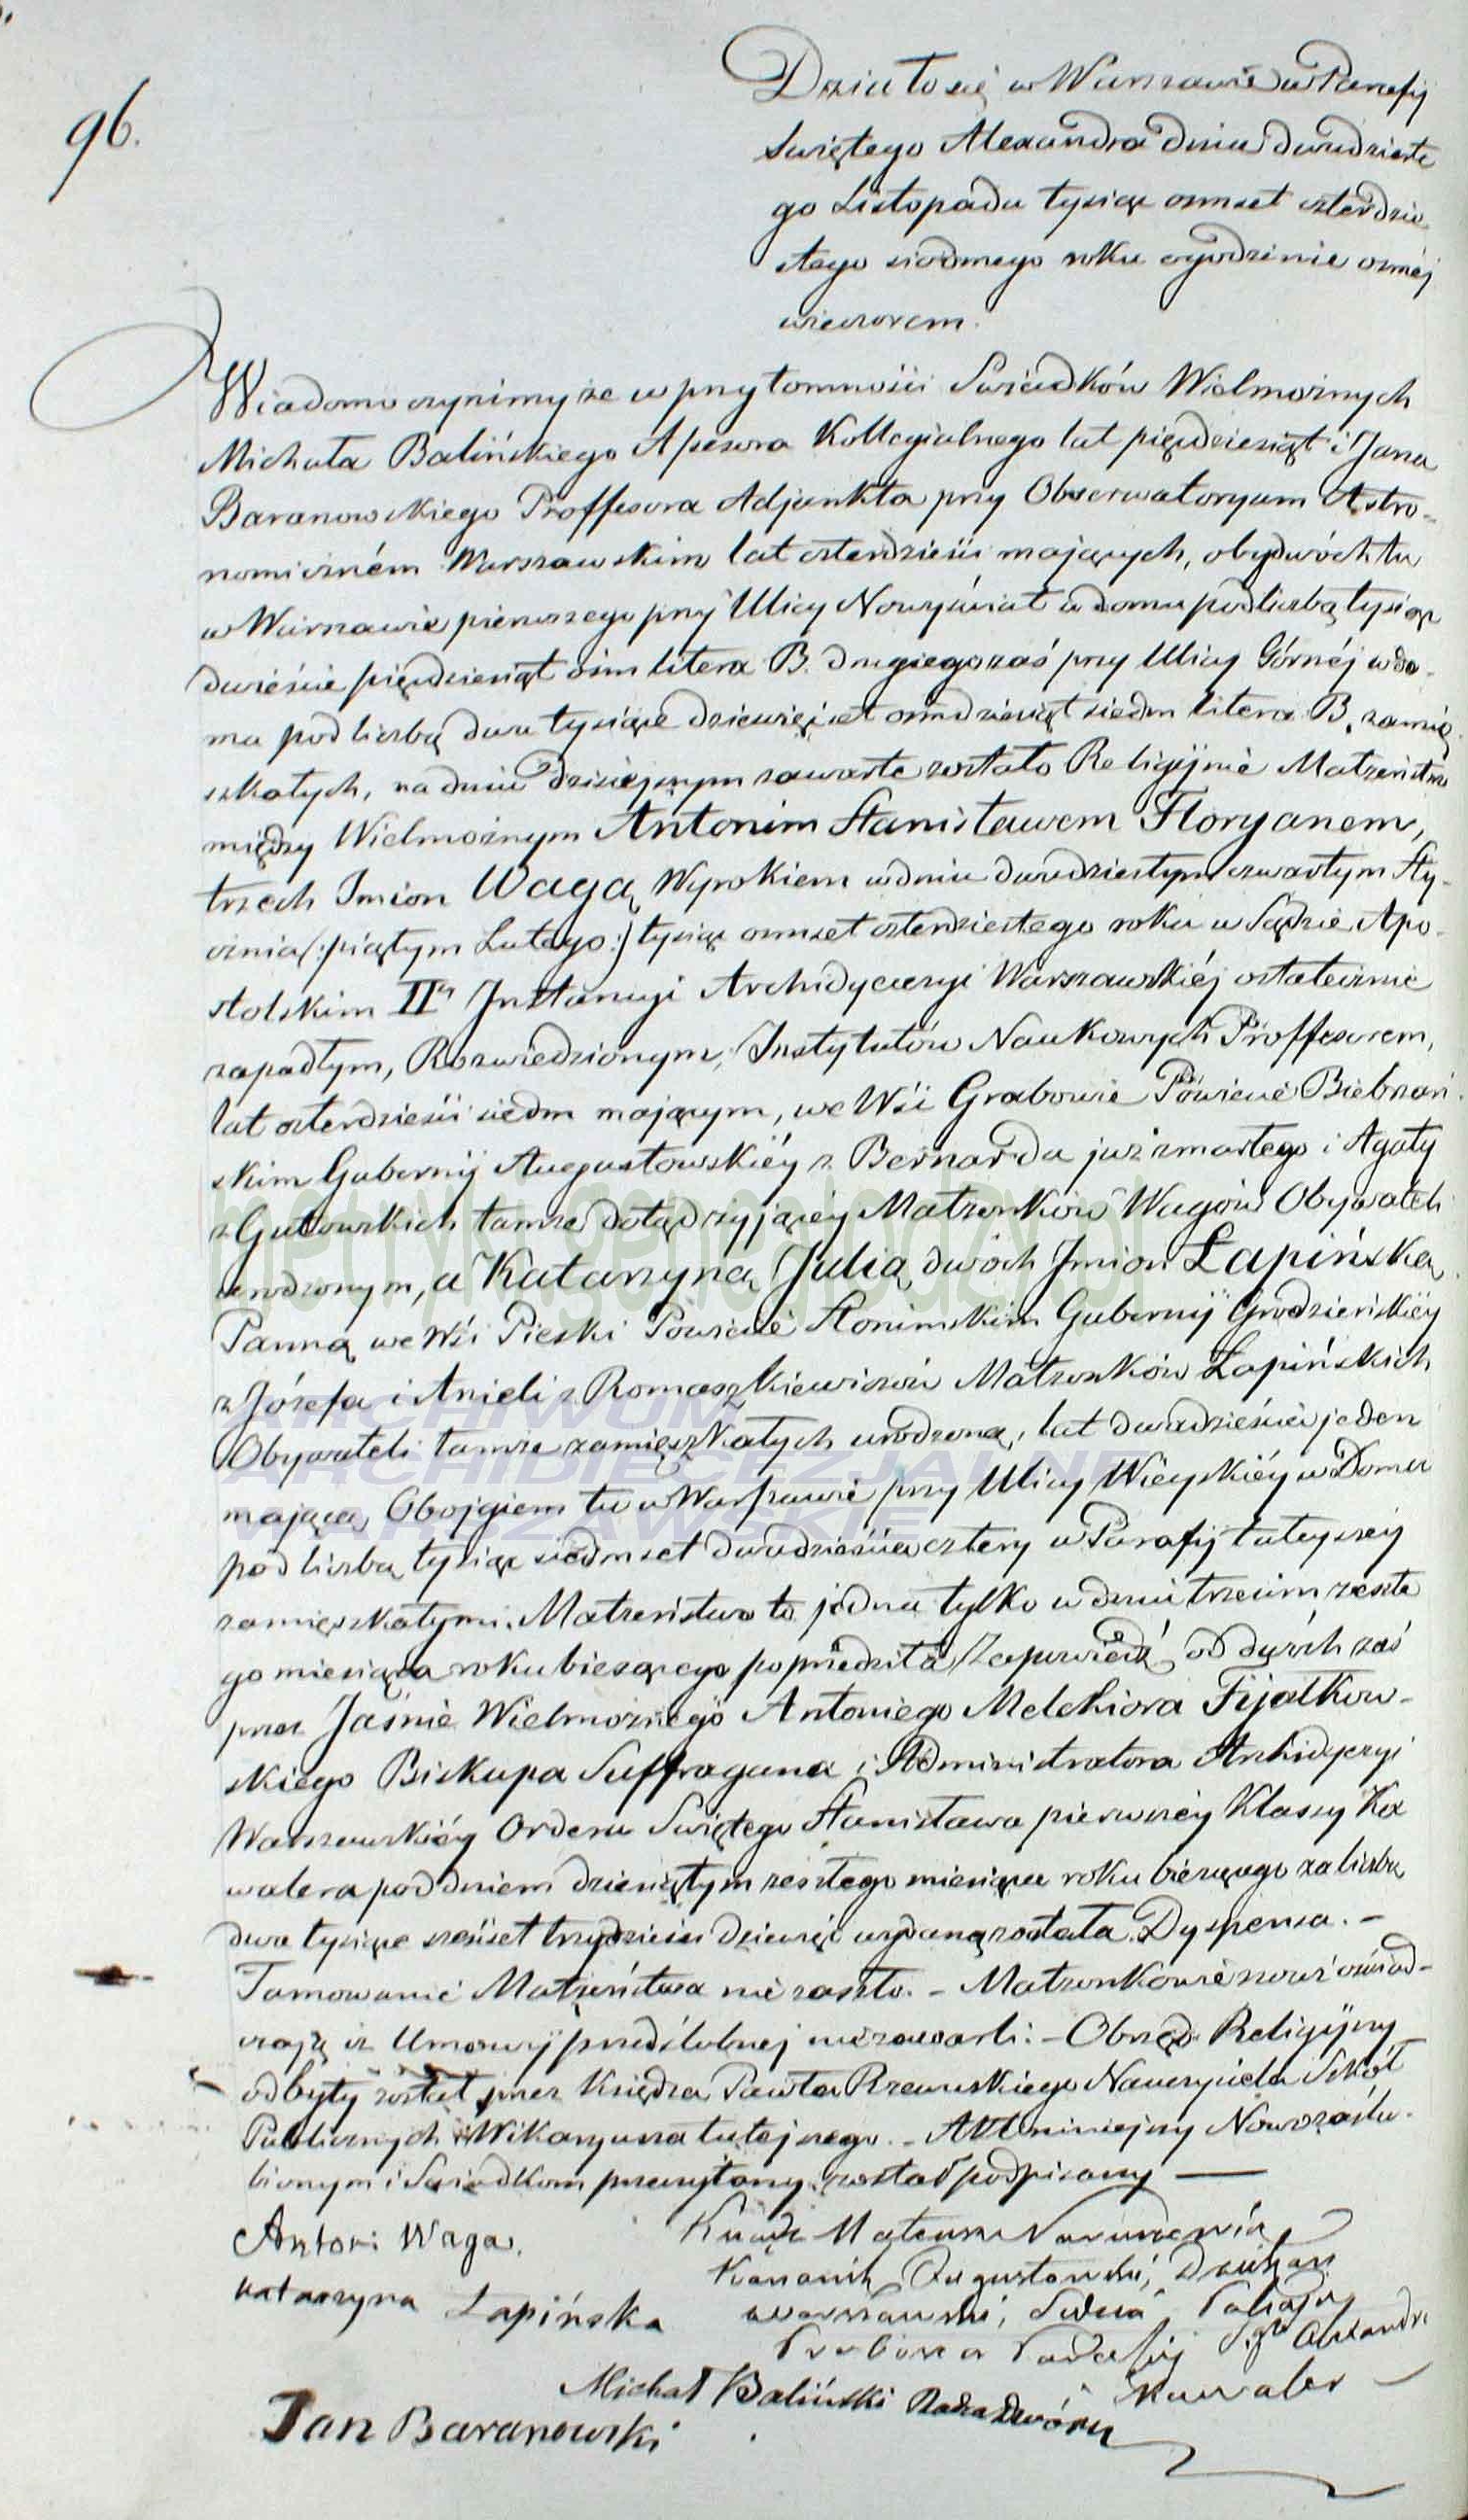 96.
Działo się w Warszawie w Parafij
Świętego Alexandra dnia dwudzieste
go Listopada tysiąc osmset czterdzie
stego siódmego roku o godzinie osméj
wieczorem.
Wiadomo czynimy że w przytomności Świadków Wielmożnych
Michała Balińskiego Assesora Kollegialnego lat pięćdziesiąt i Jana
Baranowskiego Proffesora Adjunkta przy Obserwatoryum Astro-
nomiczném Warszawskim lat czterdzieści mających, obydwóch tu
w Warszawie pierwszego przy Ulicy Nowyświat w domu pod liczbą tysiąc
dwieście pięćdziesiąt ósm litera B. drugiego zaś przy Ulicy Górnéj w do-
mu pod liczbą dwa tysiące dziewięćset osmdziesiąt siedm litera B. zamię
szkałych, na dniu dzisiejszym zawarte zostało Religijnie Małżeństwo
między Wielmożnym Antonim Stanisławem Floryanem,
trzech Imion Wagą Wyrokiem w dniu dwudziestym czwartym Sty-
cznia (:piątym Lutego:) tysiąc osmset czterdziestego roku w Sądzie Apo-
stolskim II Instancyi Archidyecezyi Warszawskiéj ostatecznie
zapadłym, Rozwiedzionym, Instytutów Naukowych Proffesorem,
lat czterdzieści siedm mającym, we Wsi Grabowie Powiecie Biebrzań
skim Gubernij Augustowskiéy z Bernarda już zmarłego i Agaty
z Gutowskich tamże dotąd żyjącéy Małżonków Wagów Obywateli
urodzonym, a Katarzyną Julią dwóch Imion Łapińską
Panną we Wsi Pieski Powiecie Słonimskim Gubernij Grodzieńskiéy
z Józefa i Anieli z Romaszkiewiczów Małżonków Łapińskich
Obywateli tamże zamięszkałych urodzoną, lat dwadzieścia jeden
mającą, Obojgiem tu w Warszawie przy Ulicy Wieyskiéy w Domu
pod liczbą tysiąc siedmset dwadzieścia cztery w Parafij tuteyszéy
zamięszkałymi. Małżeństwo to jedna tylko w dniu trzecim zeszłe
go miesiąca roku bieżącego poprzedziła Zapowiedź, od dwóch zaś
przez Jaśnie Wielmożnego Antoniego Melchiora Fijałkow-
skiego Biskupa Suffragana i Administratora Archidyecezyi
Warszawskiéy Orderu Świętego Stanisława pierwszéy Klassy Ka
walera pod dniem dziesiątym zeszłego miesiąca roku bieżącego za liczbą
dwa tysiące sześćset trzydzieści dziewięć wydaną została Dyspensa. –
Tamowanie Małżeństwa nie zaszło. – Małżonkowie nowi oświad-
czają iż Umowy przedślubnej nie zawarli: – Obrzęd Religijny
odbyty został przez Księdza Pawła Rzewuskiego Nauczyciela Szkół
Publicznych i Wikaryusza tutejszego. – Akt niniejszy Nowozaślu-
bionym i Świadkom przeczytany, został podpisany —
Antoni Waga. Ksiądz Mateusz
Kanonik Augustowski, Dziekan
Katarzyna Łapińska Warszawski, Sędzia Pokoju
Proboszcz Parafij Sgo Alexandra
Michał Baliński Radca Dworu Kawaler
Jan Baranowski
metryki.genealodzy.pl
ARCHIWUM
ARCHIDIECEZJALNE
WARSZAWSKIE